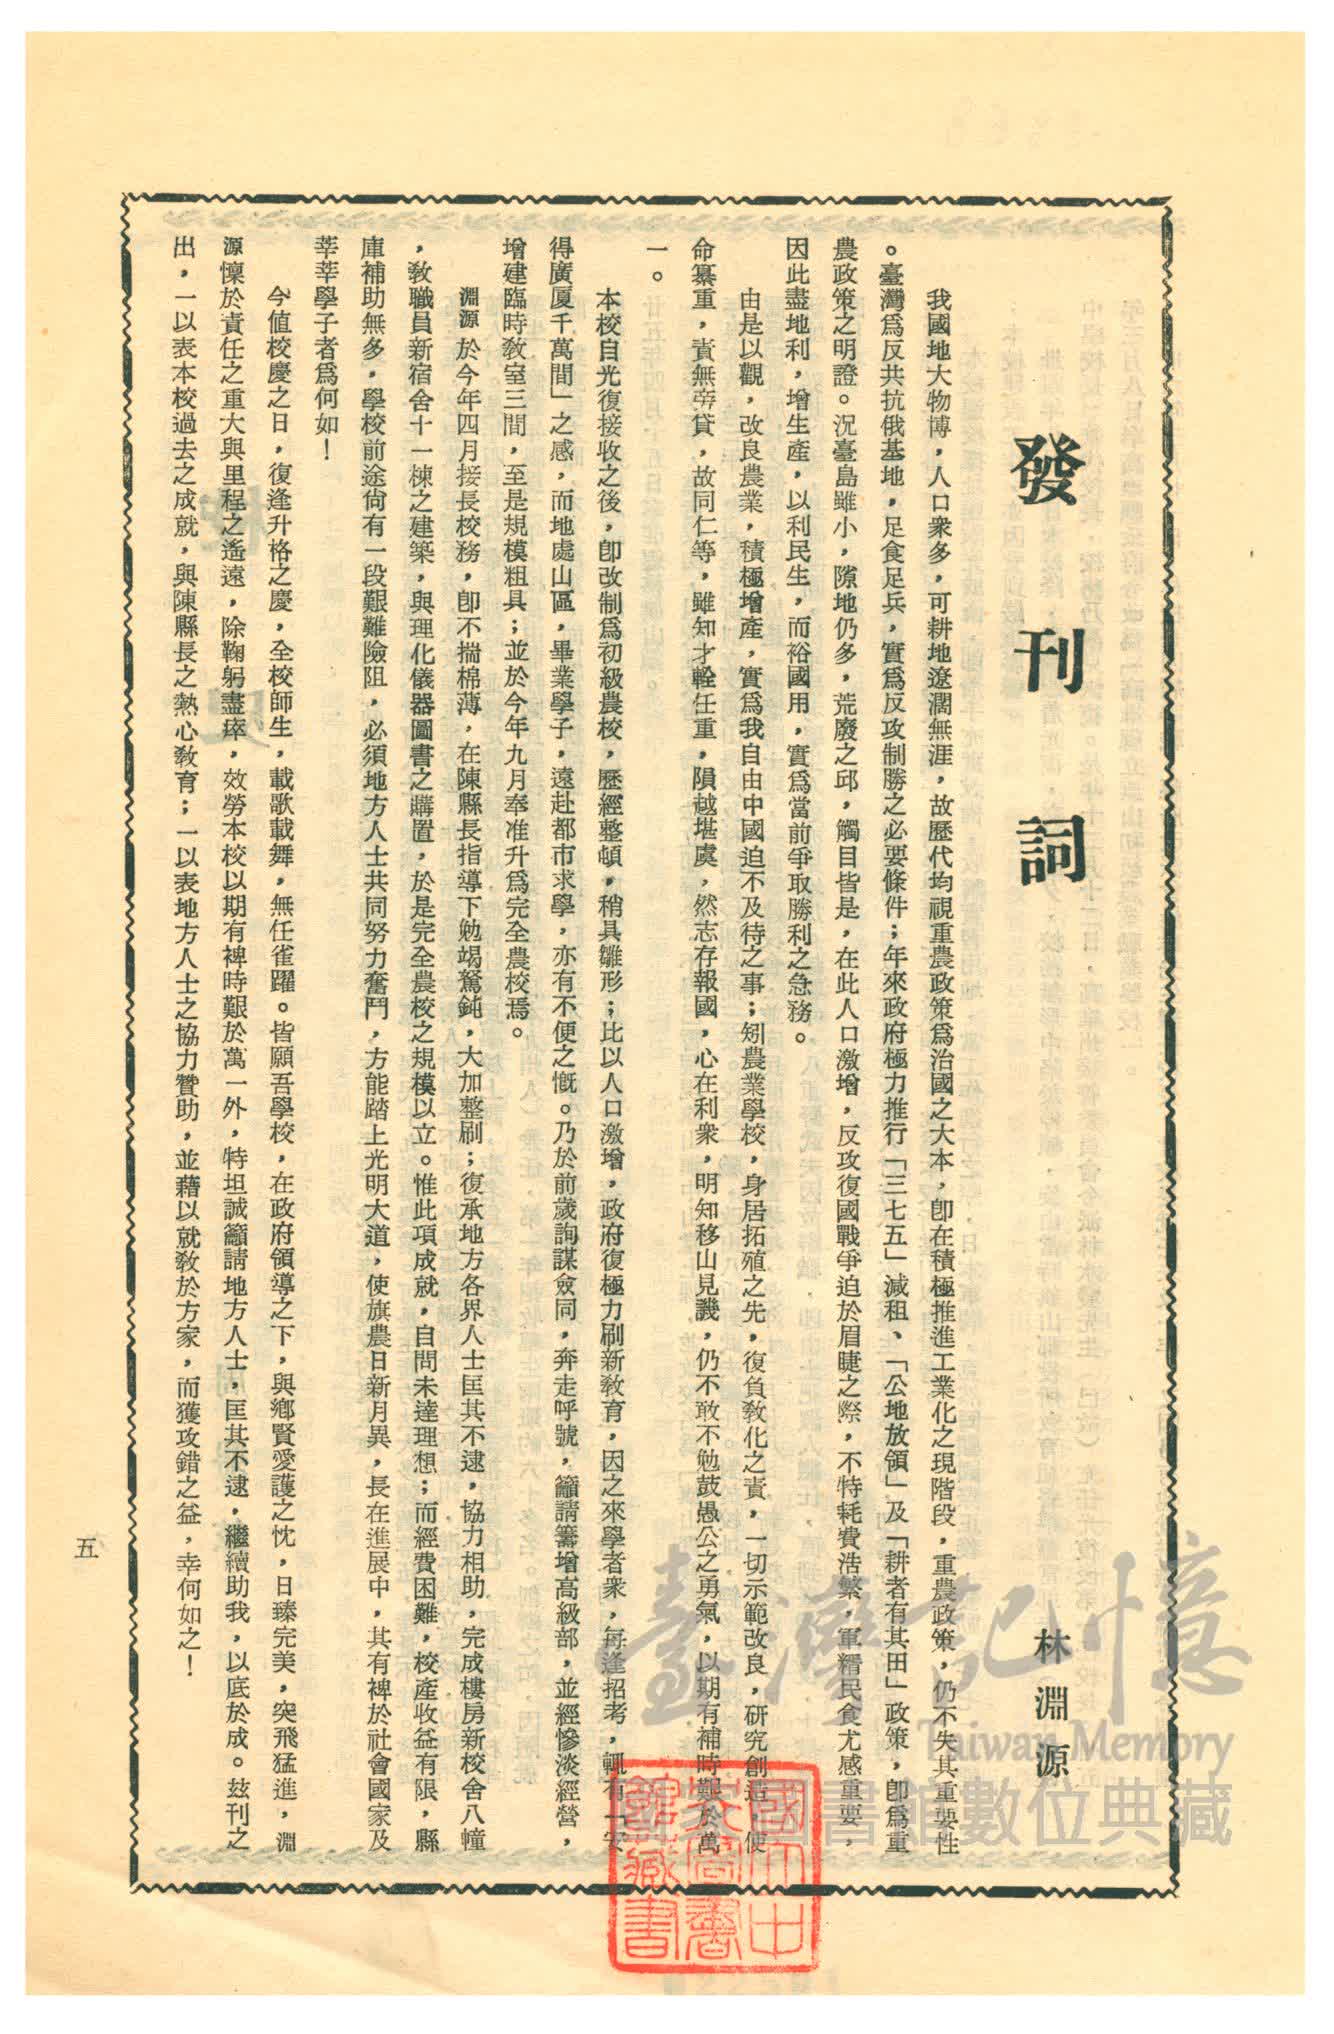 發刊詞
林淵源
我國地大物博，人口衆多，可耕地遼濶無涯，故歷代均視重農政策爲治國之大本，卽在積極推進工業化之現階段，重農政策，仍不失其重要性
。臺灣爲反共抗俄基地，足食足兵，實爲反攻制勝之必要條件；年來政府極力推行「三七五」減租、「公地放領」及「耕者有其田」政策，卽爲重
農政策之明證。況臺島雖小，隙地仍多，荒廢之邱，觸目皆是，在此人口激增，反攻復國戰爭迫於眉睫之際，不特耗費浩繁，軍糈民食尤感重要，
因此盡地利，增生產，以利民生，而裕國用，實爲當前爭取勝利之急務。
由是以觀，改良農業，積極增產，實爲我自由中國迫不及待之事；矧農業學校，身居拓殖之先，復負敎化之責，一切示範改良，研究創造，使
命綦重，責無旁貸，故同仁等，雖知才輇任重，隕越堪虞，然志存報國，心在利衆，明知移山見譏，仍不敢不勉鼓愚公之勇氣，以期有補時艱於萬
一。
本校自光復接收之後，卽改制爲初級農校，歷經整頓，稍具雛形；比以人口激增，政府復極力刷新敎育，因之來學者衆，每逢招考，輒有「安
得廣厦千萬間」之感，而地處山區，畢業學子，遠赴都市求學，亦有不便之慨。乃於前歲詢謀僉同，奔走呼號，籲請籌增高級部，並經慘淡經營，
增建臨時敎室三間，至是規模粗具；並於今年九月奉准升爲完全農校焉。
淵源於今年四月接長校務，卽不揣棉薄，在陳縣長指導下勉竭駑鈍，大加整刷；復承地方各界人士匡其不逮，協力相助，完成樓房新校舍八幢
，敎職員新宿舍十一棟之建築，與理化儀器圖書之購置，於是完全農校之規模以立。惟此項成就，自問未達理想；而經費困難，校產收益有限，縣
庫補助無多，學校前途尙有一段艱難險阻，必須地方人士共同努力奮鬥，方能踏上光明大道，使旗農日新月異，長在進展中，其有裨於社會國家及
莘莘學子者爲何如！
今值校慶之日，復逢升格之慶，全校師生，載歌載舞，無任雀躍。皆願吾學校，在政府領導之下，與鄉賢愛護之忱，日臻完美，突飛猛進，淵
源懍於責任之重大與里程之遙遠，除鞠躬盡瘁，效勞本校以期有裨時艱於萬一外，特坦誠籲請地方人士，匡其不逮，繼續助我，以底於成。玆刊之
出，一以表本校過去之成就，與陳縣長之熱心敎育；一以表地方人士之協力贊助，並藉以就敎於方家，而獲攻錯之益，幸何如之！
五
臺灣記憶
Taiwan Memory
國家圖書館數位典藏
國立中
央圖書
館藏書